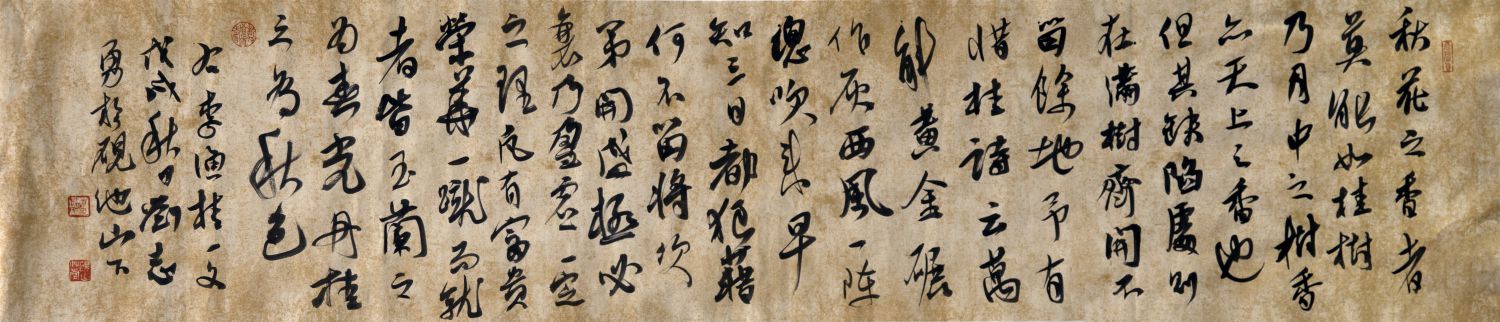 秋花之香者
莫能如桂樹
乃月中之樹香
亦天上之香也
但其缺陷處則
在滿樹齊開不
留餘地予有
惜桂詩云萬
斛黃金碾
作灰西風一陣
總吹來早
知三日都狼藉
何不留將次
第開盛極必
衰乃盈虛一定
之理凡有富貴
榮華一蹴而就
者皆玉蘭之
為春光丹桂
之為秋色
右李漁桂一文
戊戌秋日劉志
勇於硯池山下